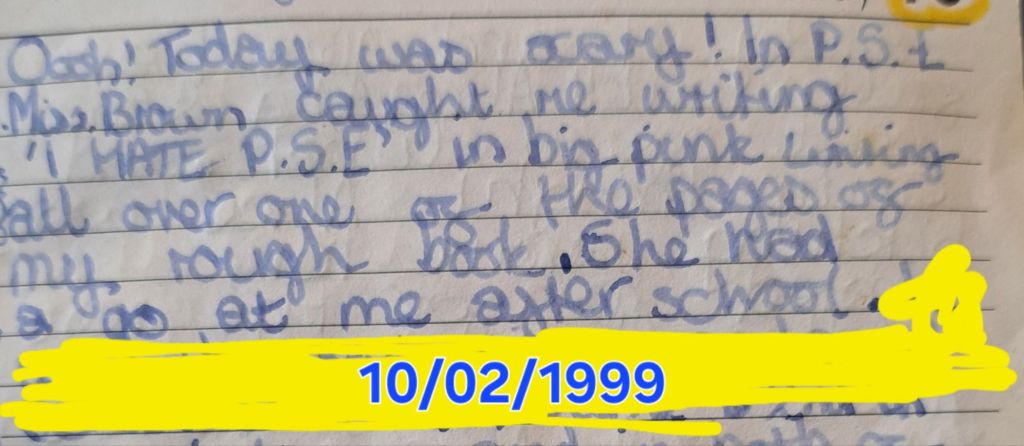 Oosh! Today was scary! In P.S.E
Miss Brown caught me writing
'I HATE P.S.E' in big pink writing
all over one of the pages of
my rough book. She had
a go at me after school.
10/02/1999